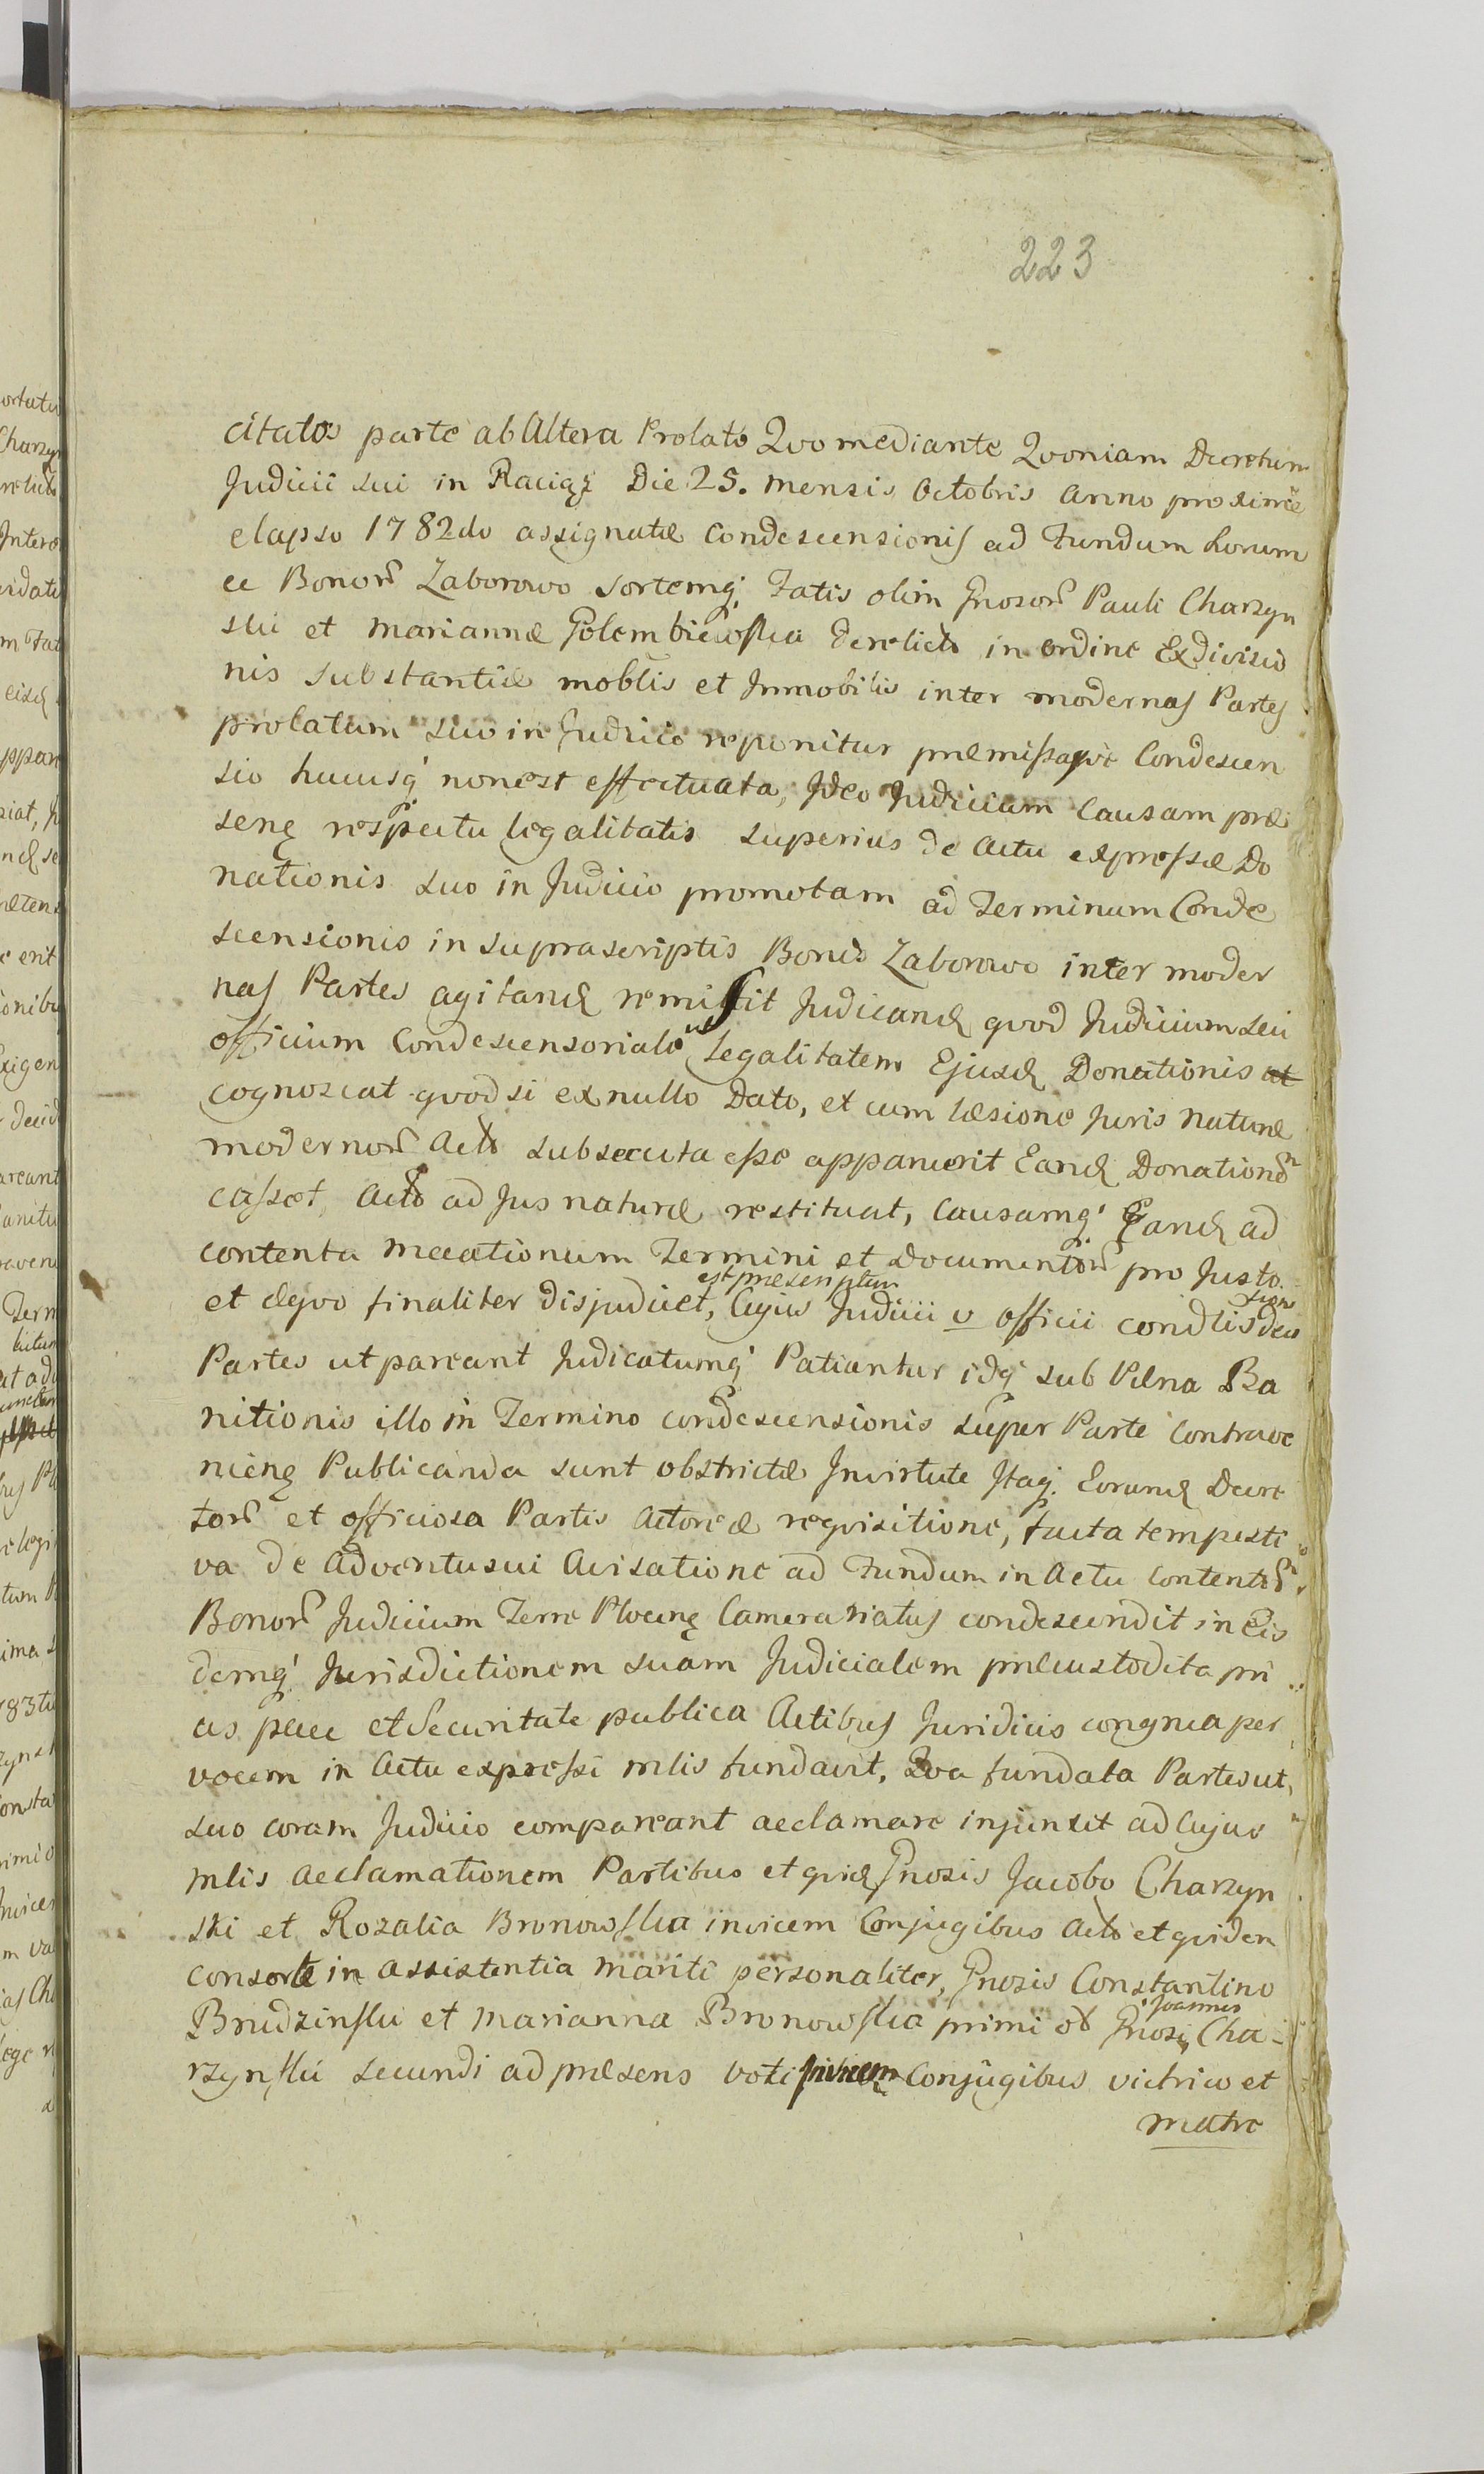 223
citatos parte ab Altera Prolato Qvo mediante Qvoniam Decretum
Judicii sui in Raciąż Die 25. Mensis Octobris Anno proxime
elapso 1782do assignatæ Condescensionis ad Fundum horum
ce Bonorũ Zaborowo Sortemq; Fatis olim Gnosorũ Pauli Charzyn
ski et Mariannæ Golembiewska derelict in ordine Exdivisio
nis Substantiæ moblis et Immobilis inter modernas Partes
prolatum suo in Judicio reponitur præmissaqve Condescen
sio hucusq; non est effectuata, Ideo Judicium Causam præ
senę respectu legalitatis superius de Actu expressæ Do
nationis suo in Judicio promotam ad Terminum Conde
scensionis in suprascriptis Bonis Zaborowo inter moder
nas Partes agitand remissit Judicand qvod Judicium seu
officium Condescensoriale ut Legalitatem Ejusd Donationis at
cognoscat qvod si ex nullo Dato, et cum læsione Juris Naturæ
modernorũ Act subsecuta esse apparuerit Eand Donationẽ
casset, Act ad Jus naturæ restituat, Causamq; Eand ad
contenta Mccationum Termini et Documentorũ pro Justo
et æqvo finaliter disjudicet, Cujus Judicii v officii condlis Decis
est præsen
sion
Partes ut pareant Judicatumq; Patiantur idq; sub Pæna Ba
nitionis illo in Termino condescensionis super Parte Contrave
nienę Publicanda sunt obstrictæ Invirtute Itaq; Eorund Decre
torũ et officiosa Partis Actoreæ reqvisitione, facta tempesti
va de Adventu sui Avisatione ad Fundum in Actu Contentorũ
Bonorũ Judicium Terræ Plocenę Cameratiatus condescendit in Eis
demq; Jurisdictionem suam Judicialem præcustodita pri
us pace et Securitate publica Actibus Juridicis congrua per
vocem in Actu expressi mlis fundavit, Qva fundata Partes ut
suo coram Judicio compareant acclamare injunxit ad Cujus
mlis Acclamationem Partibus et qvid Gnosis Jacobo Charzyn
ski et Rozalia Bronowska invicem Conjugibus Act et qvidem
consorte in assistentia mariti personaliter, Gnosis Constantino
Brudzinski et Marianna Bronowska primi et Gnosi Joannis Cha-
rzynski secundi ad præsens voti invicem Conjugibus victrico et
matre